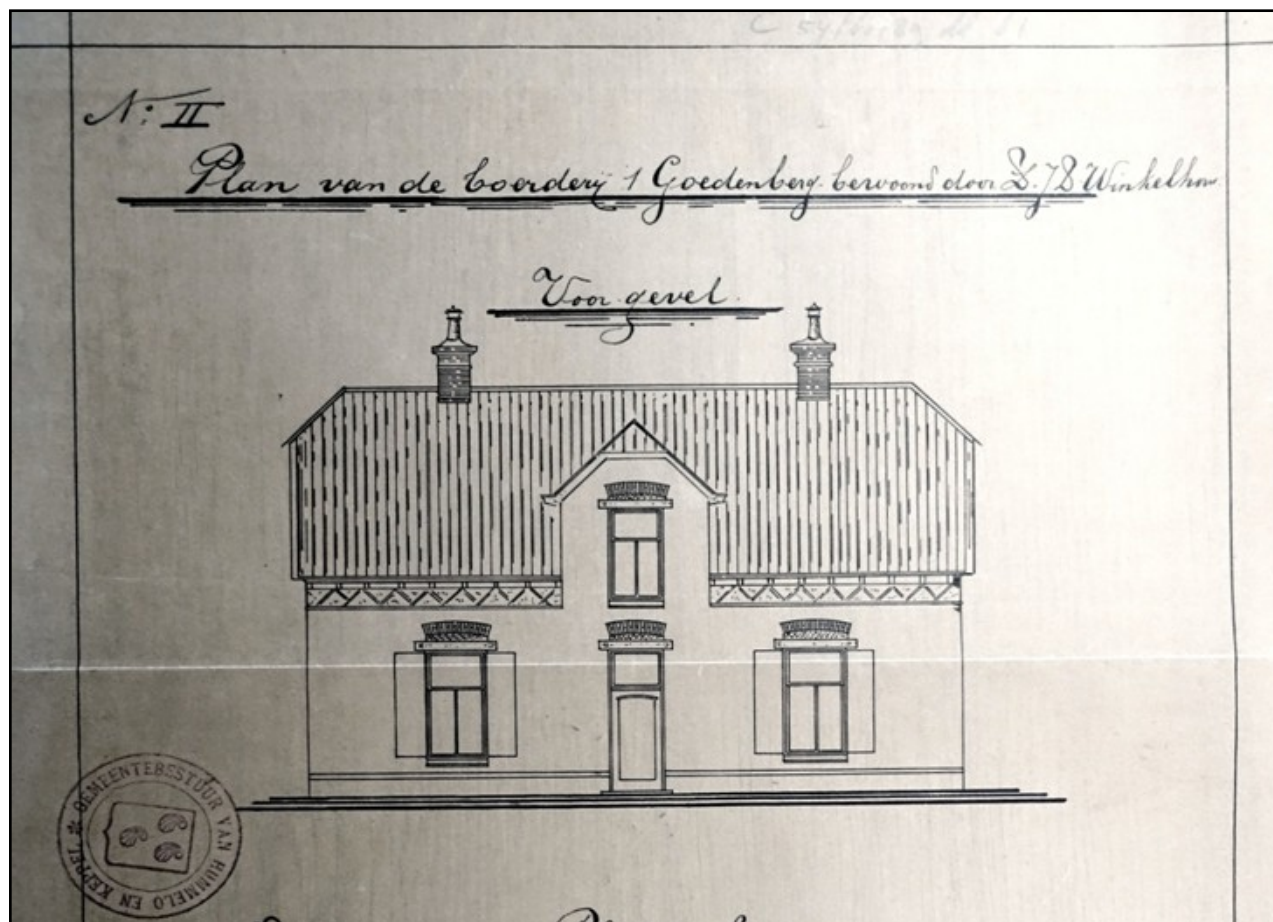 N: II
Plan van de boerderij 1 Goedenberg bewoond door Winkelhor
Voor gevel.
GEMEENTEBESTUUR VAN HUMMELO EN KEPPEL